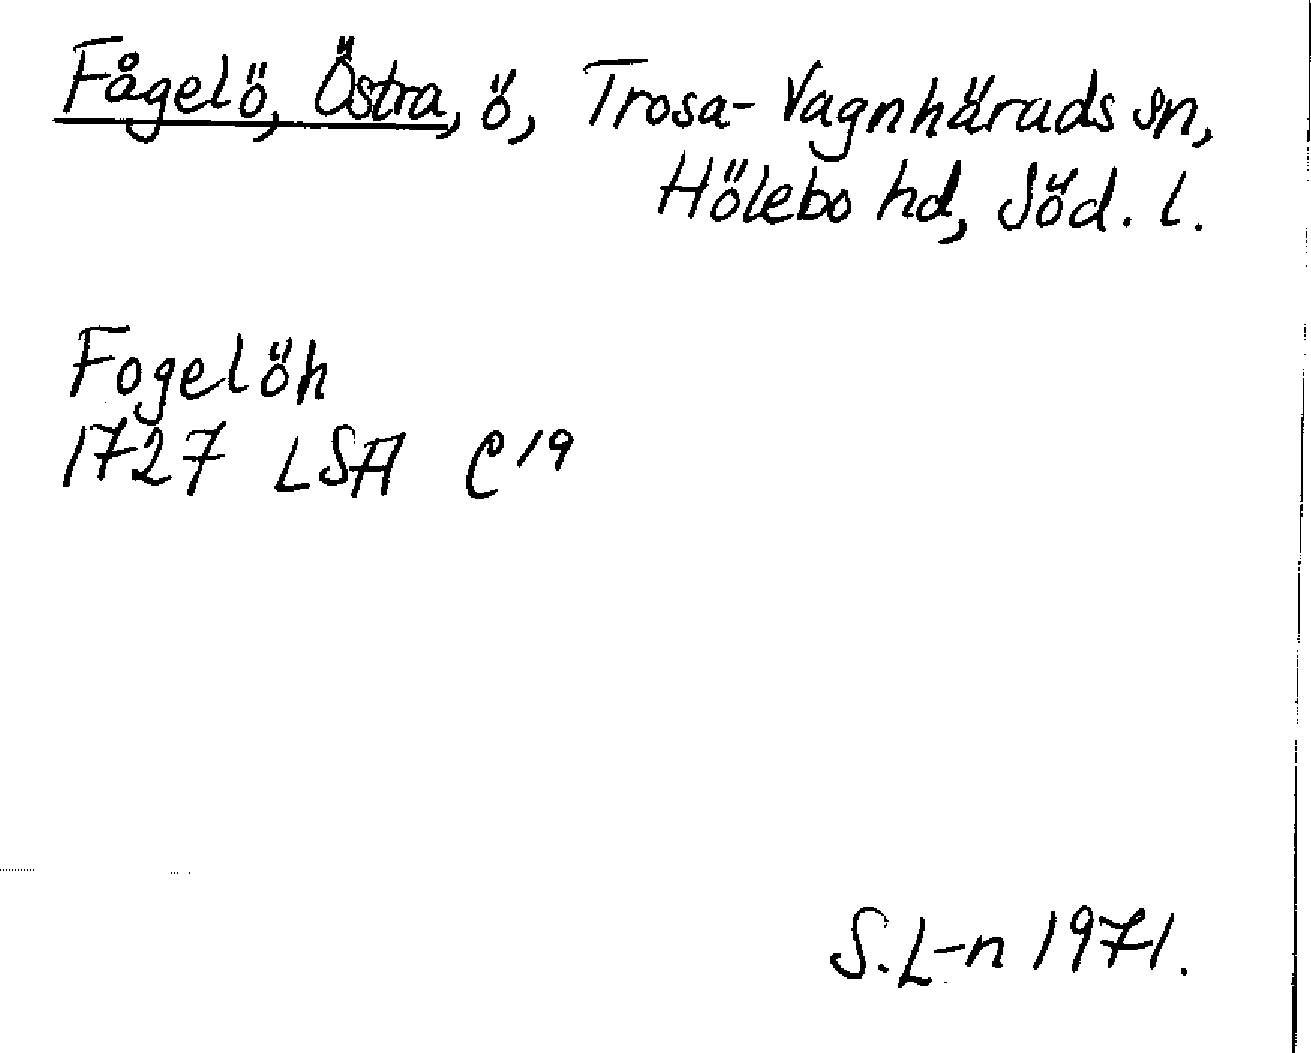 Fågelö, Östra, ö, Trosa-Vagnhärads sn,
Hölebo hd, Söd. l.
Fogelöh
1727 LSA C19
S.L-n 1971.